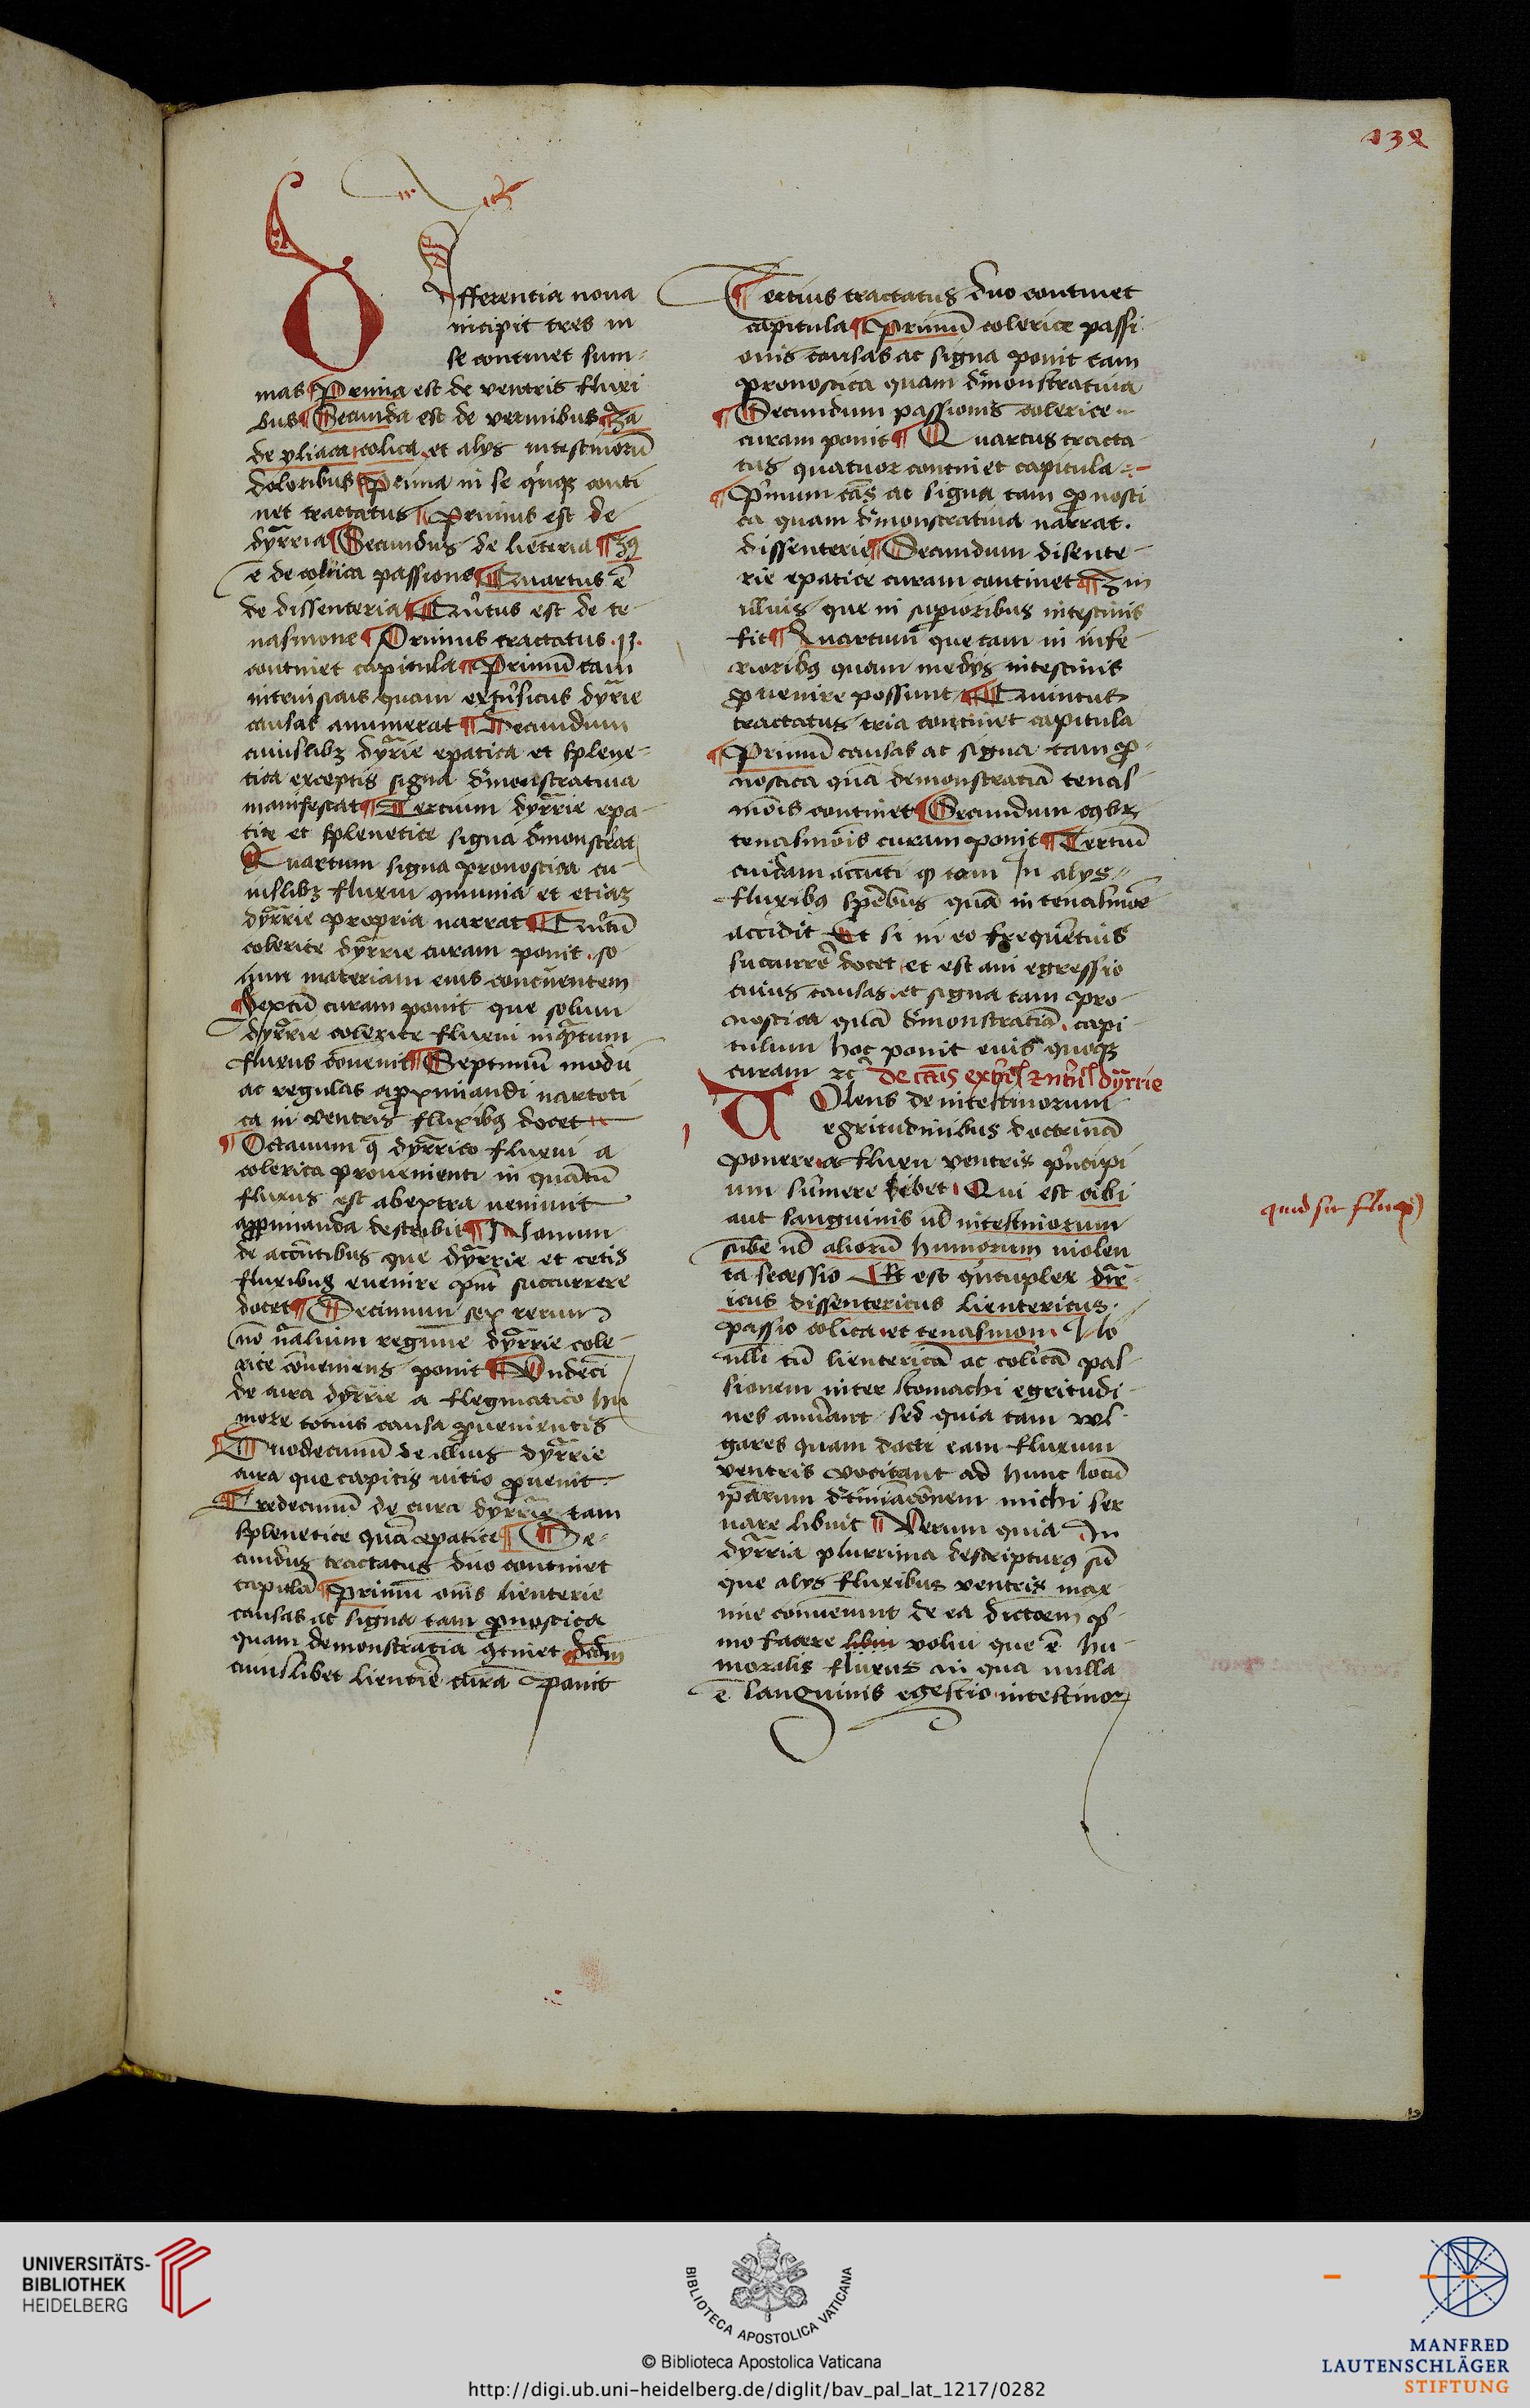 132
Differentia nona
incipit tres in
se continet sum-
mas ¶ Prima est de ventris fluxi
bus ¶ Secunda est de vermibus ¶ 3a
de yliaca colica et alijs intestinorū
doloribus ¶ Prima in se quīqꝫ conti
net tractatus ¶ Primus est de
dyārria ¶ Secundus de lienteria ¶ 3us
ē de colica passione ¶ Quartus ē
de dissenteria ¶ Quītus est de te-
nasmone ¶ Primus tractatus .13.
continet capitula ¶ Primū tam
intrinsicas quam extrīsicas dyārie
causas anumerat ¶ Secundum
cuiuslibꝫ dyārie epatica et splene-
tica exceptis signa dēmonstratiua
manifestat ¶ Tercium dyārrie epa-
tice et splenetice signa dēmonstrat
Quartum signa pronostica cu-
iuslibꝫ fluxus ꝯmunia et etiaꝫ
dyārrie propria narrat ¶ Quītū
colerice dyārrie curam ponit so
lum materiam eius concernentem
¶ Sextū curam ponit que solum
dyārrie colerice fluxui inqᵃntum
fluxus ꝯuenit ¶ Septimū modū
ac regulas aproximandi narcoti
ca in ventris fluxibꝰ docet
¶ Octauum q̄ dyārrico fluxui a
colerica prouenienti in quātū
fluxus est abextra ueniunt
apponanda describit ¶ Nonum
de accn̄tibus que dyārrie et cet̄is
fluxibus euenire pn̄t succurrere
docet ¶ Decimum sex rerum
nō nᵃaluium regimē dyārrie cole-
rice ꝯueniens ponit ¶ Vndecī
de cura dyārrie a flegmatico hu
more totius causa ꝓuenientis
¶ Duodecimū de illius dyārrie
cura que capitis uitio ꝓuenit
¶ Tredecimū de cura dyārrie tam
splenetice quā epatice ¶ Se-
cundus tractatus duo continet
capitl̄a ¶ Primū oīs lienterie
causas ac signa tam ꝓnostica
quam demonstratīa ꝯtinet Scdm̄
cuiuslibet lienterīe curā ponit
¶ Tertius tractatus duo continet
capitula ¶ Primū colerice passi
onis causas ac signa ponit tam
pronostica quam dēmonstratiua
¶ Secundum passionis colerice
curam ponit ¶ Quartus tracta-
tus quatuor continet capitula
¶ Pͥmum cās ac signa tam ꝓnosti
ca quam dēmonstratiua narrat.
dissenterie ¶ Secundum disente-
rie epatice curam continet ¶ 3m
illius que in suꝑioribus intestinis
fit ¶ Quartum que tam in infe-
rioribꝰ quam medijs intestinis
ꝓuenire possunt ¶ Quintus
tractatus tria continet capitula
¶ Primū causas ac signa tam ꝓ-
nostica quā demonstratiā tenas-
mōis continet ¶ Secundum
tenasmōis curam ponit ¶ Tertiū
cuidam accn̄ti qꝫ tam in alijs
fluxibꝰ spēbus quā in tenasmōe
accidit Et si in eo freqūetius
succurrē docet et est ani egressio
cuius causas et signa tam pro-
nostica quā dēmonstratiā. capi-
tulum hoc ponit eius quoqꝫ
curam ⁊c̄ de cāis extrīs ⁊ intrīs dyārrie
Volens de intestinorum
egritudinibus doctrinā
ponere a fluxu ventris prīcipi
um sūmere libet Qui est cibi
aut sanguinis uł intestinorum
sube uł aliorū humorum uiolen
ta secessio Et est quītuplex dīar
icus dissentericus lientericus.
passio colica et tenasmon. No
nulli tn̄ lientericā ac colicā pas-
sionem inter stomachi egritudi-
nes anūerant sed quia tam vul-
gares quam docti eam fluxum
ventris vocitant ad hunc locū
ip̄arum dēteriāc̄onem michi ser
uare libuit ¶ Verum quia In
dyārria plurrima descripturꝰ sū
que alijs fluxibus ventris max-
ime conueniunt de ea dictōem pͥ-
mo facere volui que ē hu-
moralis fluxus in qua nulla
ē sanguinis egestio intestinorꝝ
quid sit fluxꝰ
UNIVERSITÄTS-
BIBLIOTHEK
HEIDELBERG
BIBLIOTECA APOSTOLICA VATICANA
© Biblioteca Apostolica Vaticana
http://digi.ub.uni-heidelberg.de/diglit/bav_pal_lat_1217/0282
MANFRED
LAUTENSCHLÄGER
STIFTUNG